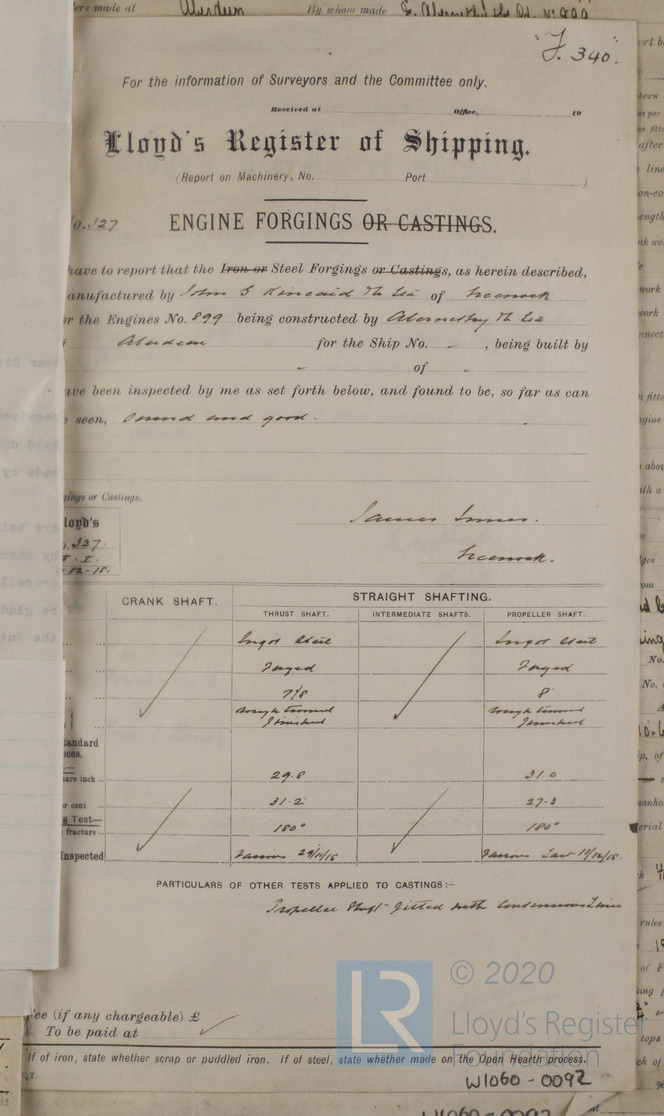 ers made at Aberdeen By whom made
"F. 340.
For the information of Surveyors and the Committee only.
Received at Office, 19
Lloyd's Register of Shipping.
(Report on Machinery, No. Port )
No. 327
ENGINE FORGINGS OR CASTINGS.
have to report that the Iron or Steel Forgings or Castings, as herein described,
anufactured by John G Kincaid & Co Ltd of Greenock
or the Engines No. 899 being constructed by Abernethy & Co
Aberdeen for the Ship No. - , being built by
- of -
ave been inspected by me as set forth below, and found to be, so far as can
seen, Sound and good.
gings or Castings.
loyd's
. 327.
T. I.
-12-18.
James Innes.
Greenock.
CRANK SHAFT. STRAIGHT SHAFTING.
THRUST SHAFT. INTERMEDIATE SHAFTS. PROPELLER SHAFT.
Ingot Steel Ingot Steel
Forged Forged
7 1/8 8
rough turned rough turned
finished finished
tandard
eces.
are inch 29.8 31.0
r cent 31.2 27.3
g Test—
fracture 180° 180°
Inspected
PARTICULARS OF OTHER TESTS APPLIED TO CASTINGS:-
Propeller Shaft fitted with Continuous Liner
Fee (if any chargeable) £
To be paid at
If of iron, state whether scrap or puddled iron. If of steel, state whether made on the Open Hearth process.
LR
© 2020
Lloyd's Register
Foundation
W1060-0092
W1060-0092